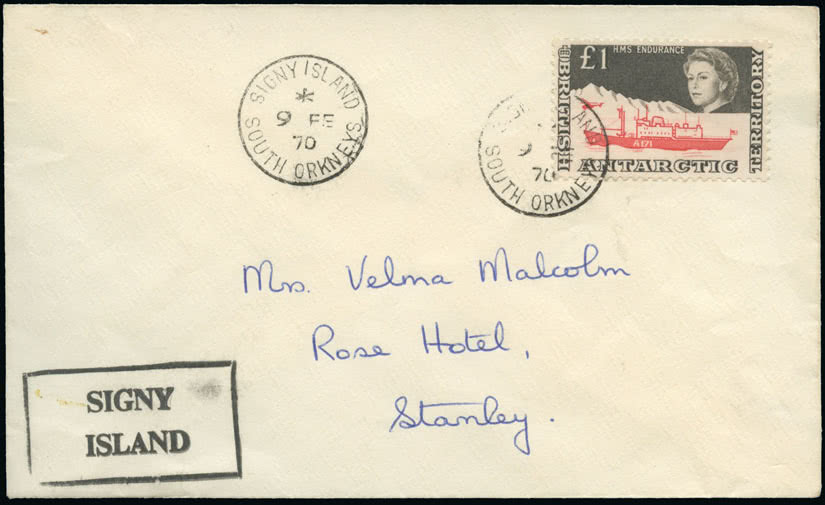 SIGNY ISLAND
*
9 FE
70
SOUTH ORKNEYS
9
70
SOUTH ORKNEYS
£1 HMS ENDURANCE
BRITISH
ANTARCTIC
TERRITORY
A171
Mrs. Velma Malcolm
Rose Hotel,
Stanley.
SIGNY
ISLAND